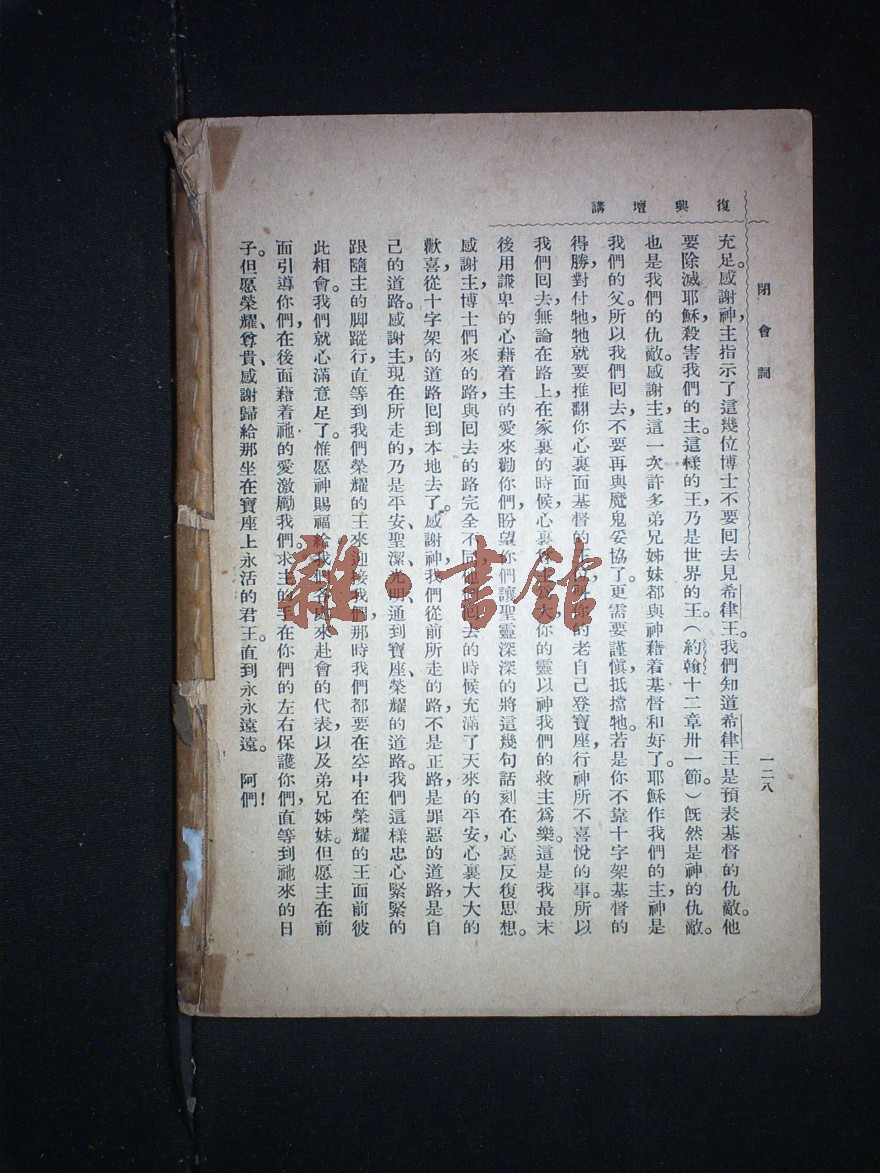 復興壇講
閉會詞
一二八
充足。感謝神,主指示了這幾位博士不要回去見希律王。我們知道希律王是預表基督的仇敵。他
要除滅耶穌,殺害我們的主。這樣的王乃是世界的王。(約翰十二章卅一節。)旣然是神的仇敵。
也是我們的仇敵。感謝主,這一次許多弟兄姊妹都與神藉着基督和好了。耶穌作我們的主,神是
我們的父。所以我們回去,不要再與魔鬼妥協了。更需要謹愼,抵擋牠。若是你不靠十字架基督的
得勝,對付牠,牠就要推翻你心裏面基督的 你的老自己登寶座,行神所不喜悅的事。所以
我們回去,無論在路上,在家裏的時候,心裏 主 大,你的靈以神我們的救主爲樂。這是我最末
後用謙卑的心藉着主的愛來勸你們,盼望你們讓聖靈深深的將這幾句話刻在心裏反復思想。
感謝主,博士們來的路與回去的路完全不同,他們回去的時候充滿了天來的平安,心裏大大的
歡喜,從十字架的道路回到本地去了。感謝神,我們從前所走的路不是正路,是罪惡的道路,是自
己的道路。感謝主,現在所走的,乃是平安、聖潔、光明、通到寶座、榮耀的道路。我們這樣忠心緊緊的
跟隨主的脚蹤行,直等到我們榮耀的王來迎接我們,那時我們都要在空中在榮耀的王面前彼
此相會。我們就心滿意足了。惟愿神賜福給我們各處來赴會的代表,以及弟兄姊妹。但愿主在前
面引導你們,在後面藉着祂的愛激勵我們。求主的手在你們的左右保護你們,直等到祂來的日
子。但愿榮耀、尊貴、感謝歸給那坐在寶座上永活的君王。直到永永遠遠。 阿們!
雜·書館